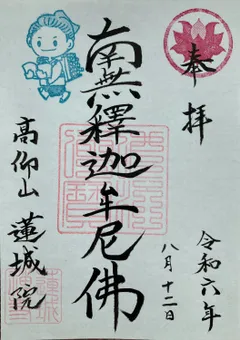 奉拝
令和六年
八月十二日
南無釋迦牟尼佛
高仰山 蓮城院